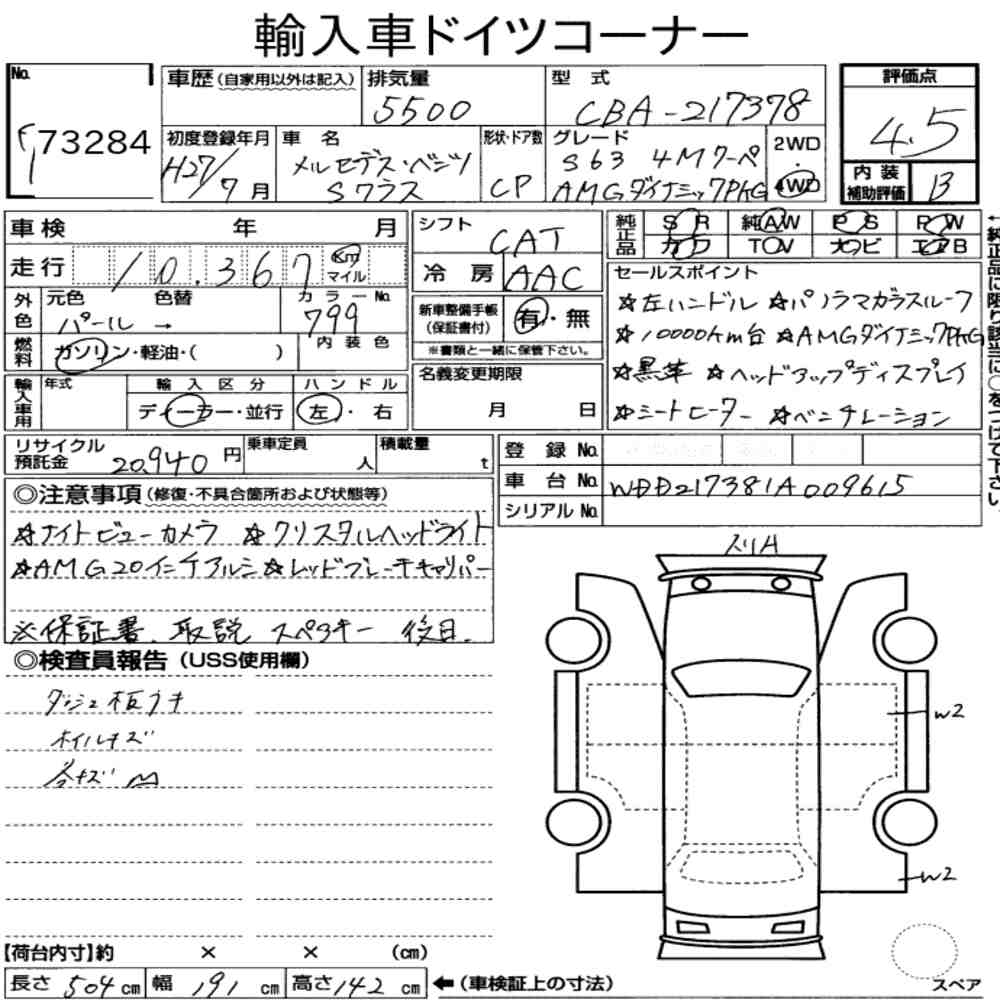 輸入車ドイツコーナー
No.
73284
車歴(自家用以外は記入)
排気量
5500
型 式
CBA-217378
評価点
4.5
初度登録年月
H27/7月
車 名
メルセデス・ベンツ
Sクラス
形状・ドア数
CP
グレード
S63 4Mクーペ
AMGダイナミックPKG
2WD
4WD
内装
補助評価
B
車検 年 月
走行
10.367
Km
マイル
外色
元色 色替
パール →
カラーNo.
799
内装色
燃料
ガソリン・軽油・( )
輸入車用
年式
輸入区分
ディーラー・並行
ハンドル
左・右
シフト
CAT
冷房
AAC
新車整備手帳
(保証書付)
有・無
※書類と一緒に保管下さい。
名義変更期限
月 日
純正品
SR 純AW PS PW
カワ TV ナビ エアB
←純正品に限り該当に○をつけて下さい。
セールスポイント
☆左ハンドル ☆パノラマガラスルーフ
☆10000km台 ☆AMGダイナミックPKG
☆黒革 ☆ヘッドアップディスプレイ
☆シートヒーター ☆ベンチレーション
リサイクル
預託金
20,940円
乗車定員
人
積載量
t
登録No.
車台No.
WDD2173781A009615
シリアルNo.
◎注意事項(修復・不具合箇所および状態等)
☆ナイトビューカメラ ☆クリスタルヘッドライト
☆AMG20インチアルミ☆レッドブレーキキャリパー
※保証書、取説 スペアキー 後日.
◎検査員報告(USS使用欄)
ダッシュ板ウキ
ホイルキズ
各キズ
スリA
W2
W2
スペア
【荷台内寸】約 × × (cm)
長さ504cm
幅191cm
高さ142cm
←(車検証上の寸法)